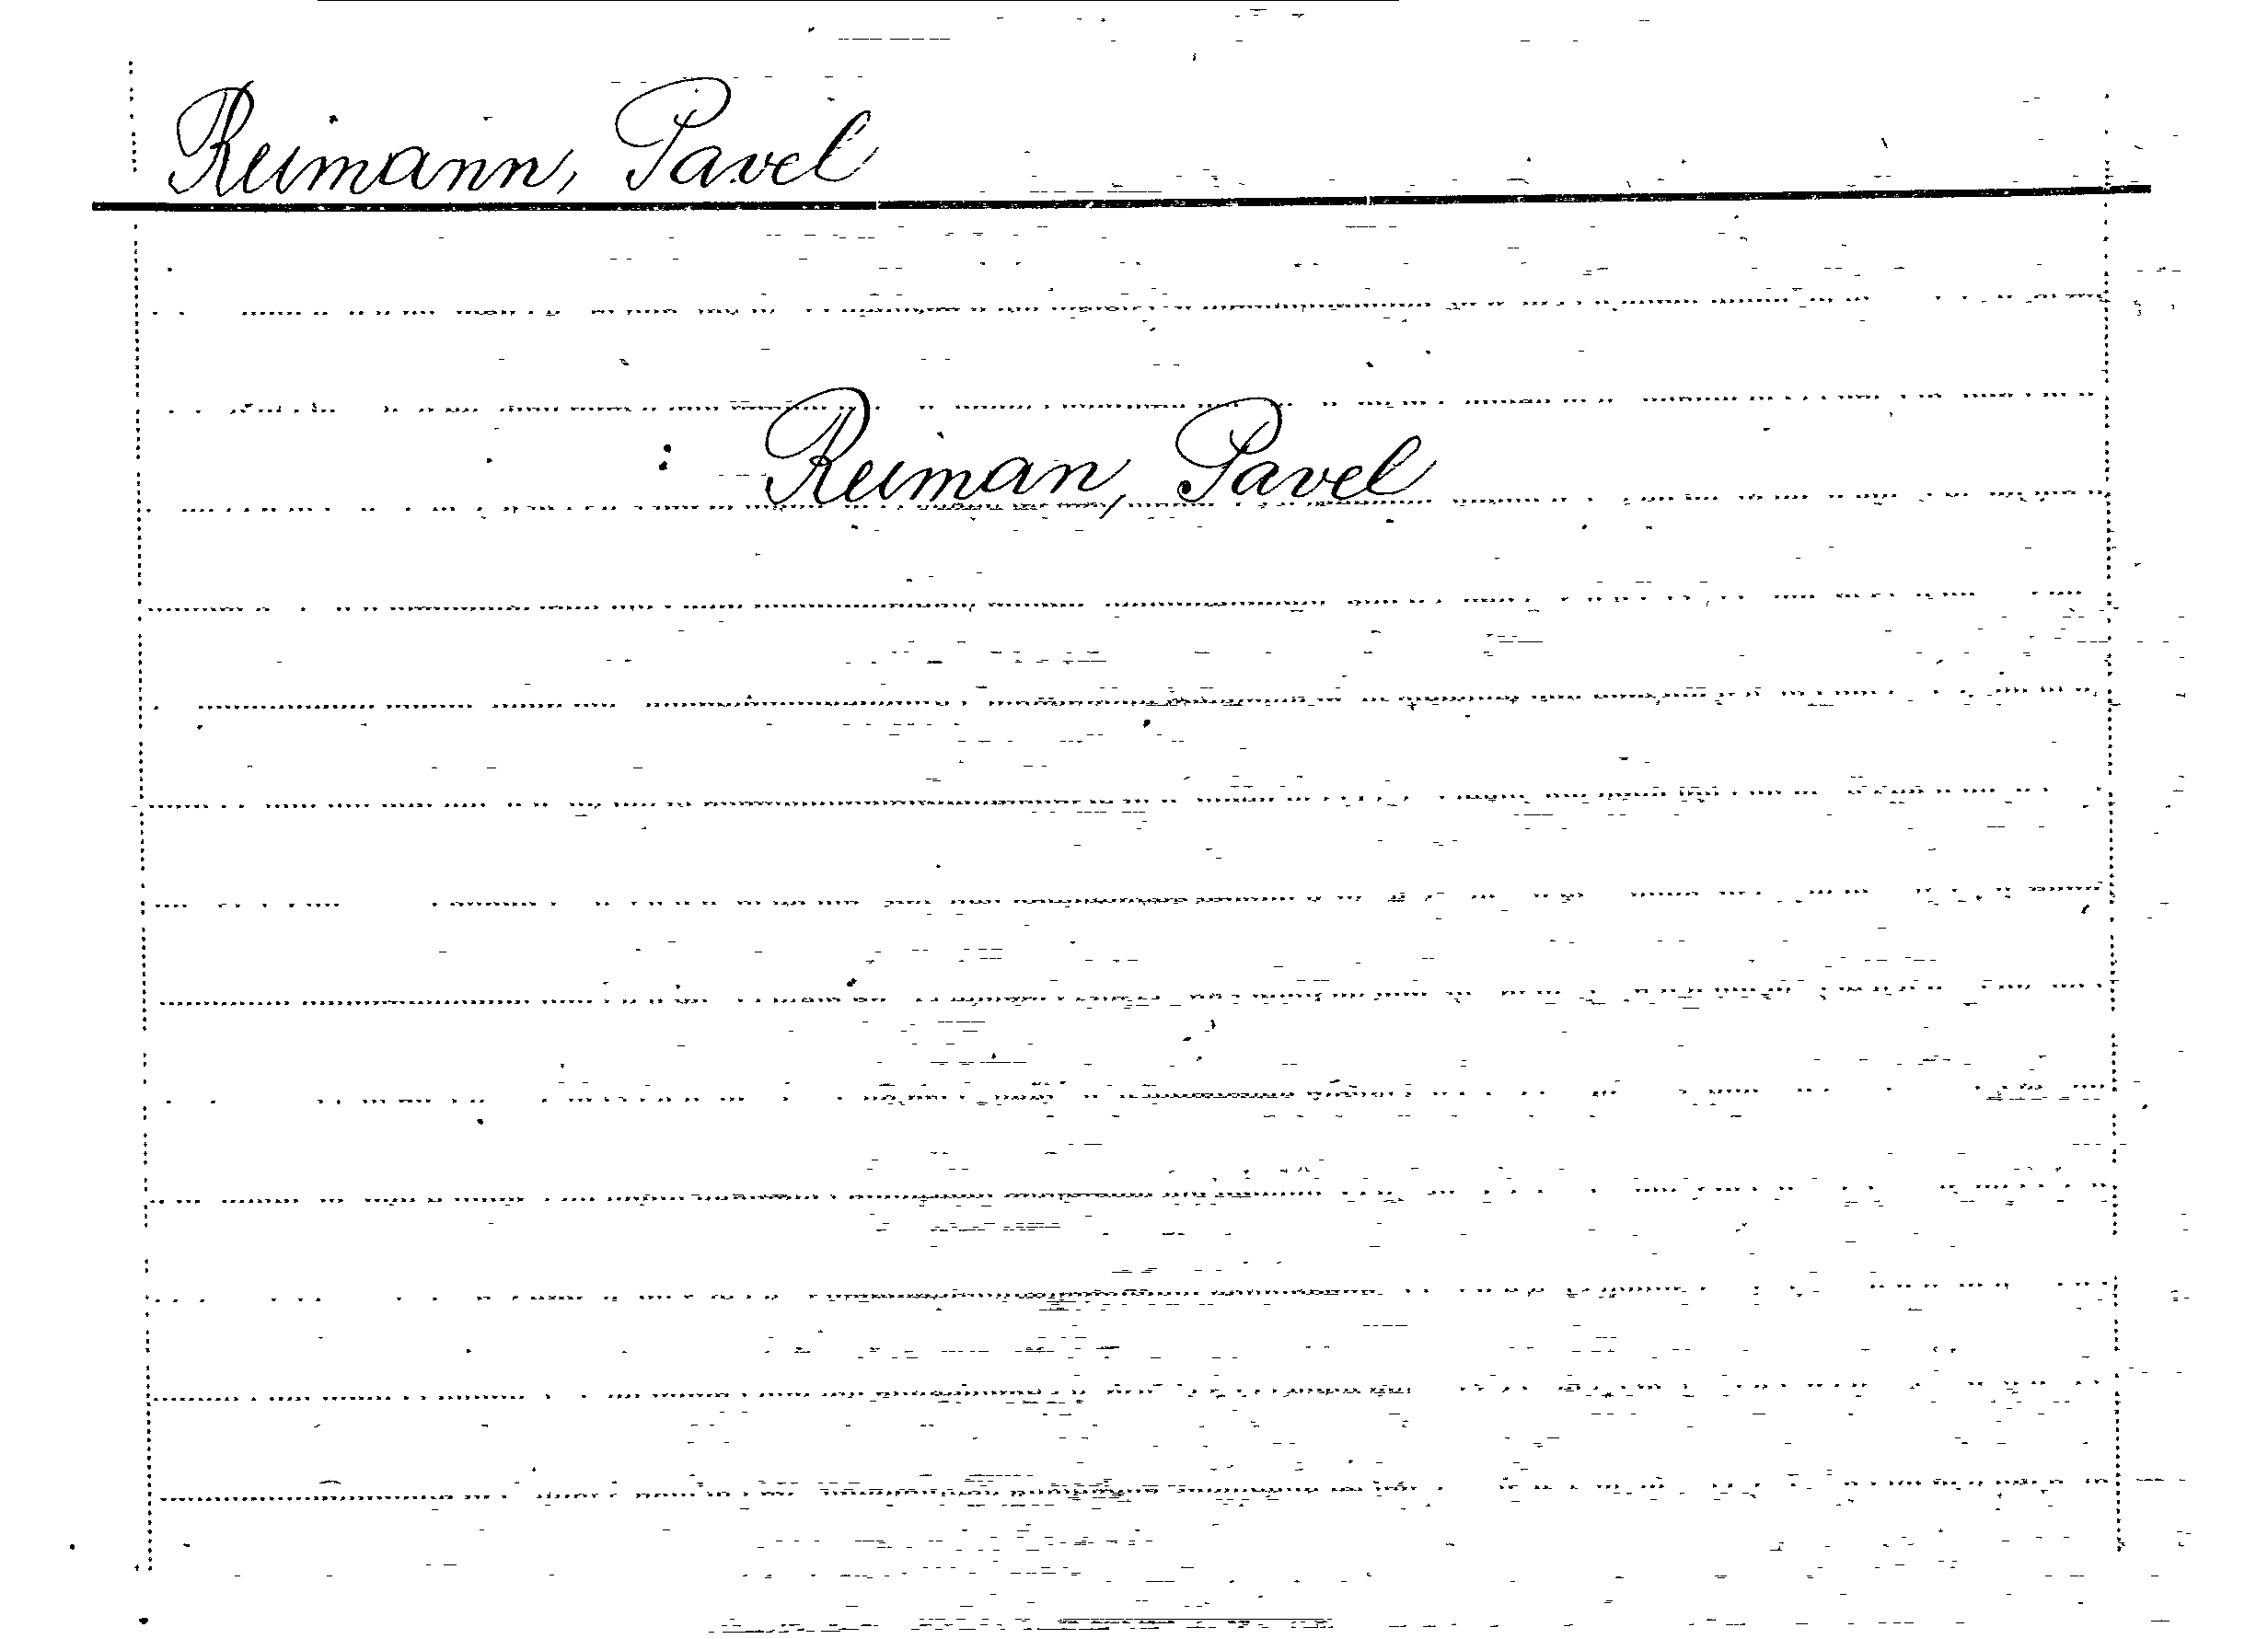 Reimann, Pavel
: Reiman, Pavel